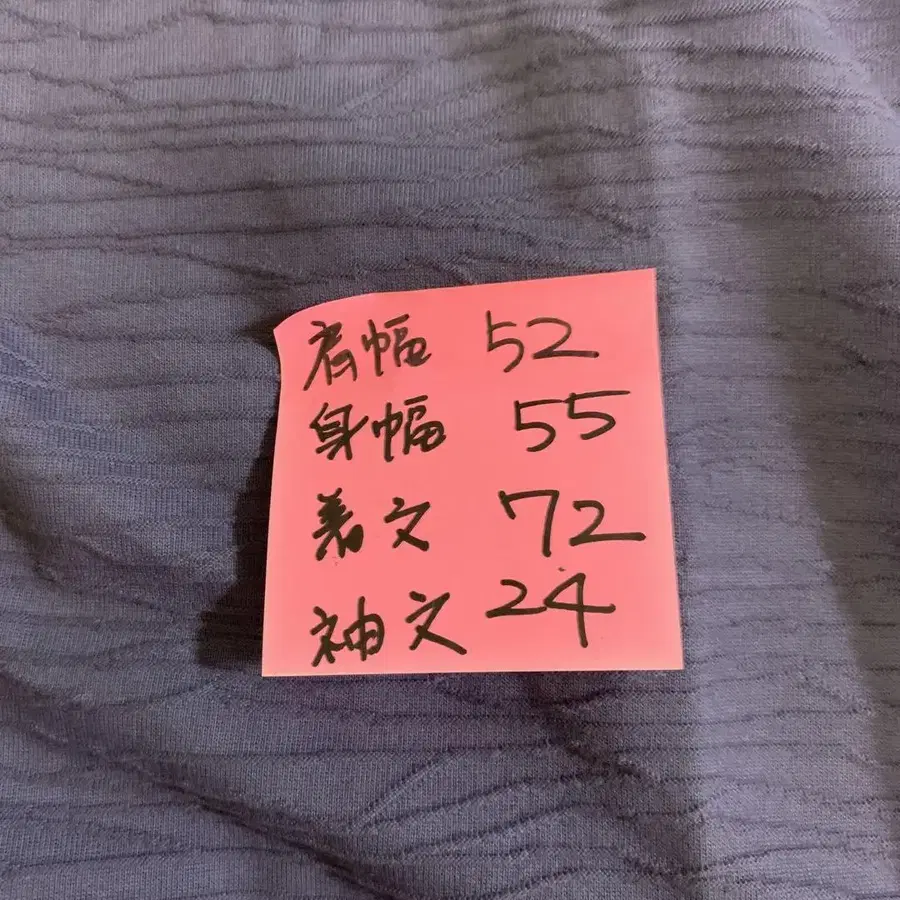 肩幅 52
身幅 55
着丈 72
袖丈 24